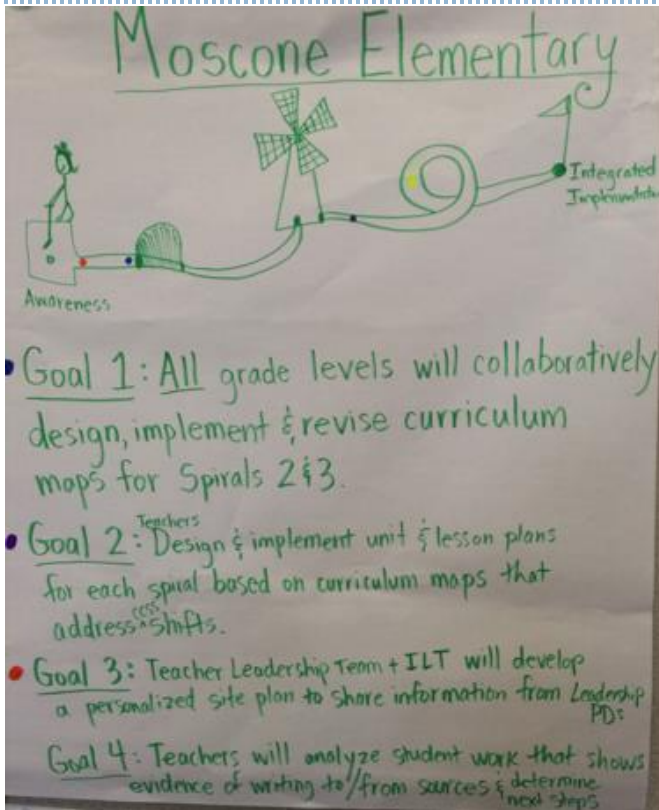 Moscone Elementary
Integrated
Implementation
Awareness
Goal 1: All grade levels will collaboratively
design, implement & revise curriculum
maps for Spirals 2 & 3.
Teachers
Goal 2: Design & implement unit & lesson plans
for each spiral based on curriculum maps that
CCSS
address ^ shifts.
Goal 3: Teacher Leadership Team + ILT will develop
a personalized site plan to share information from Leadership
PDs
Goal 4: Teachers will analyze student work that shows
evidence of writing to/from sources & determine
next steps